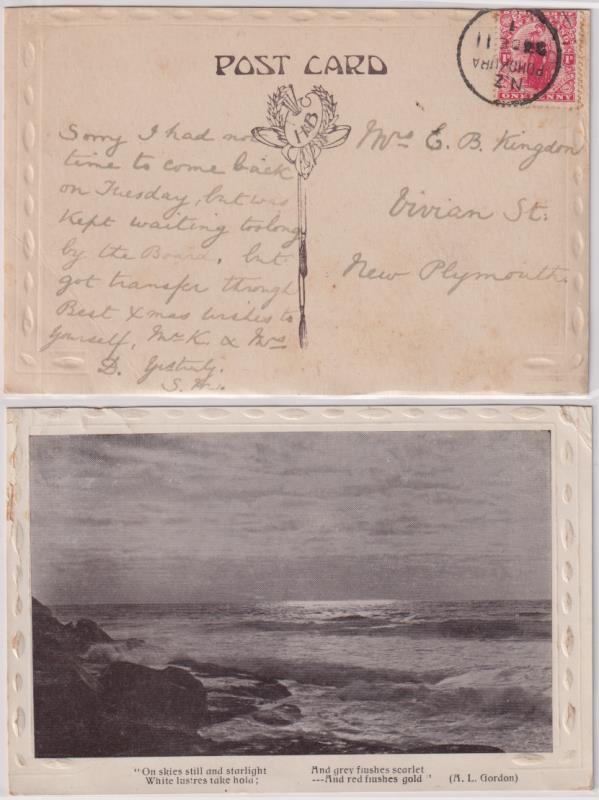 POST CARD
H&B
N.Z
POHOKURA
23 DE 11
ONE PENNY
Sorry I had not
time to come back
on Tuesday, but was
kept waiting too long
by the Board, but
got transfer through
Best Xmas wishes to
yourself, Mr K. & Mrs
D.
S. W.
Mrs E. B. Kingdon
Vivian St.
New Plymouth.
"On skies still and starlight
White lustres take hold;
And grey flushes scarlet
---And red flushes gold" (A. L. Gordon)